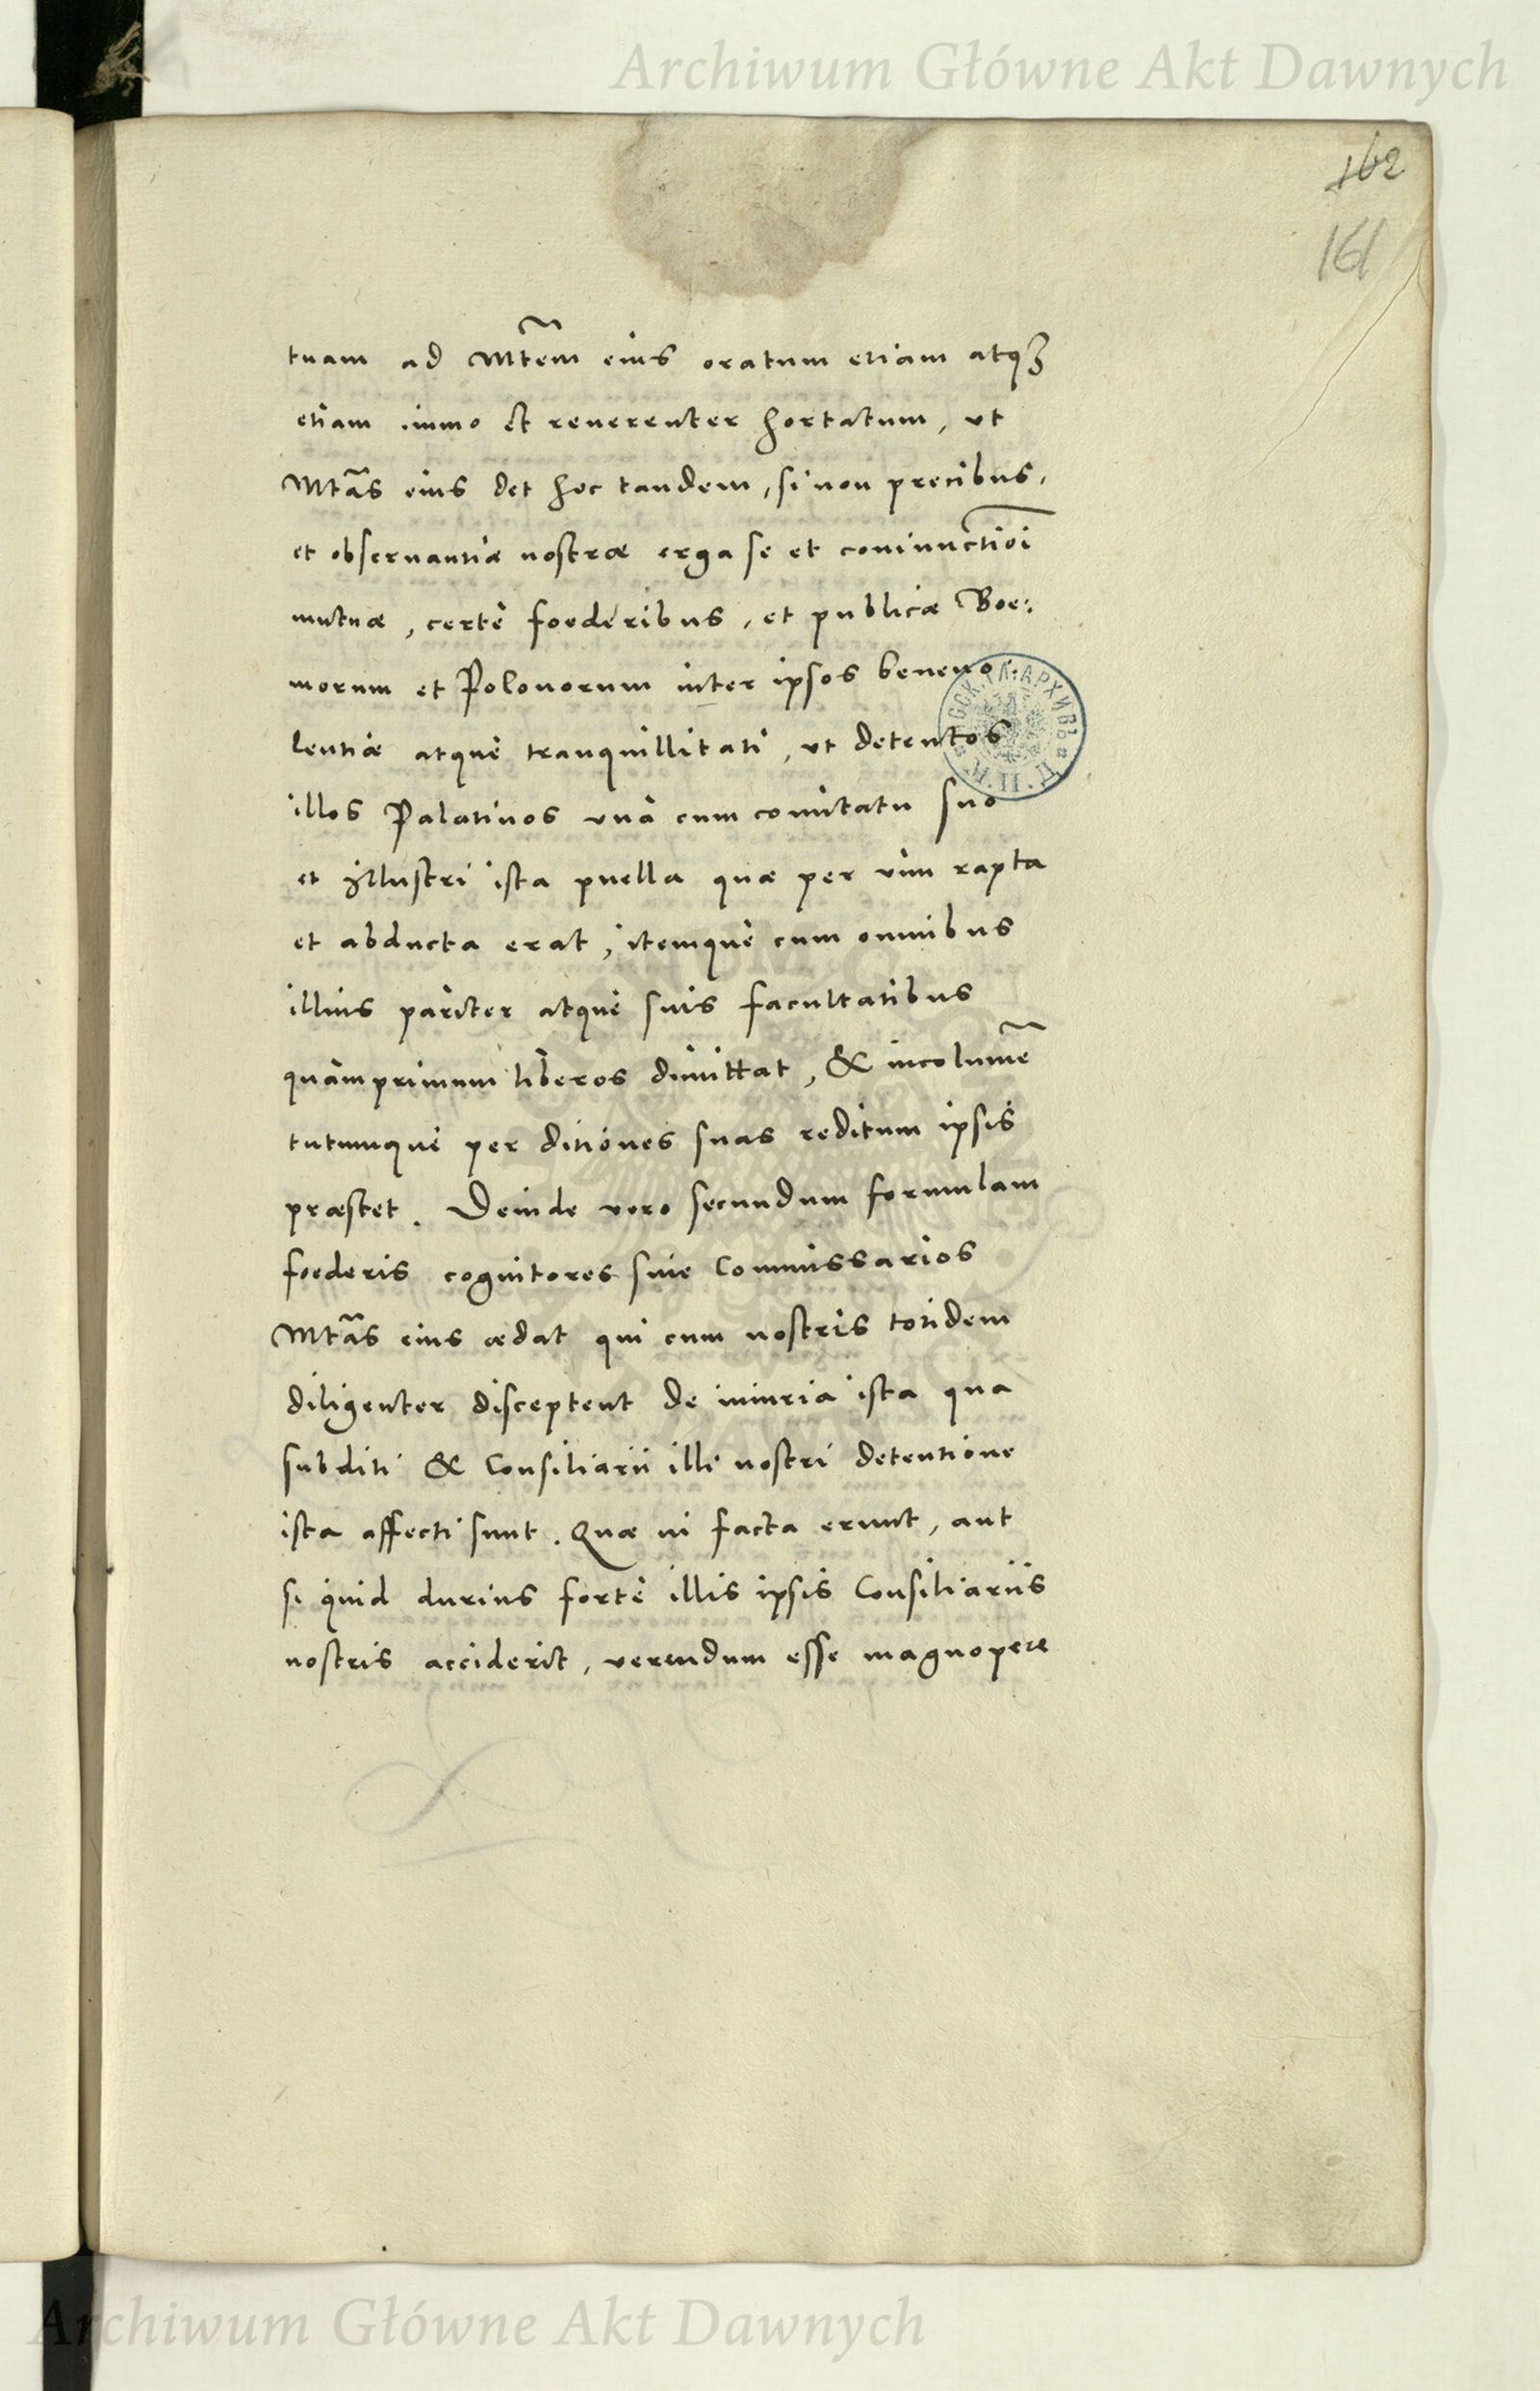 Archiwum Główne Akt Dawnych
162
161
tuam ad Mtem eius oratum etiam atq3
etiam immo et reuerenter hortatum, ut
Mtas eius det hoc tandem, si non precibus,
et obseruantiæ nostræ erga se et coniunctioi
mutuæ, certè foederibus, et publicæ Boe:
morum et Polonorum inter ipsos beneuo:
lentiæ atque tranquillitati, ut detentos
illos Palatinos unà cum comitatu suo
et Illustri ista puella quæ per uim rapta
et abducta erat, itemque cum omnibus
illius pariter atque suis facultatibus
quàmprimum liberos dimittat, & incolumē
tutumque per ditiones suas reditum ipsis
præstet. Deinde uero secundum formulam
foederis cognitores siue Commissarios
Mtas eius ædat qui cum nostris totidem
diligenter disceptent de iniuria ista qua
subditi & Consiliarii illi nostri detentione
ista affecti sunt. Quæ ni facta erunt, aut
si quid durius fortè illis ipsis Consiliariis
nostris acciderit, uerendum esse magnopere
Archiwum Główne Akt Dawnych